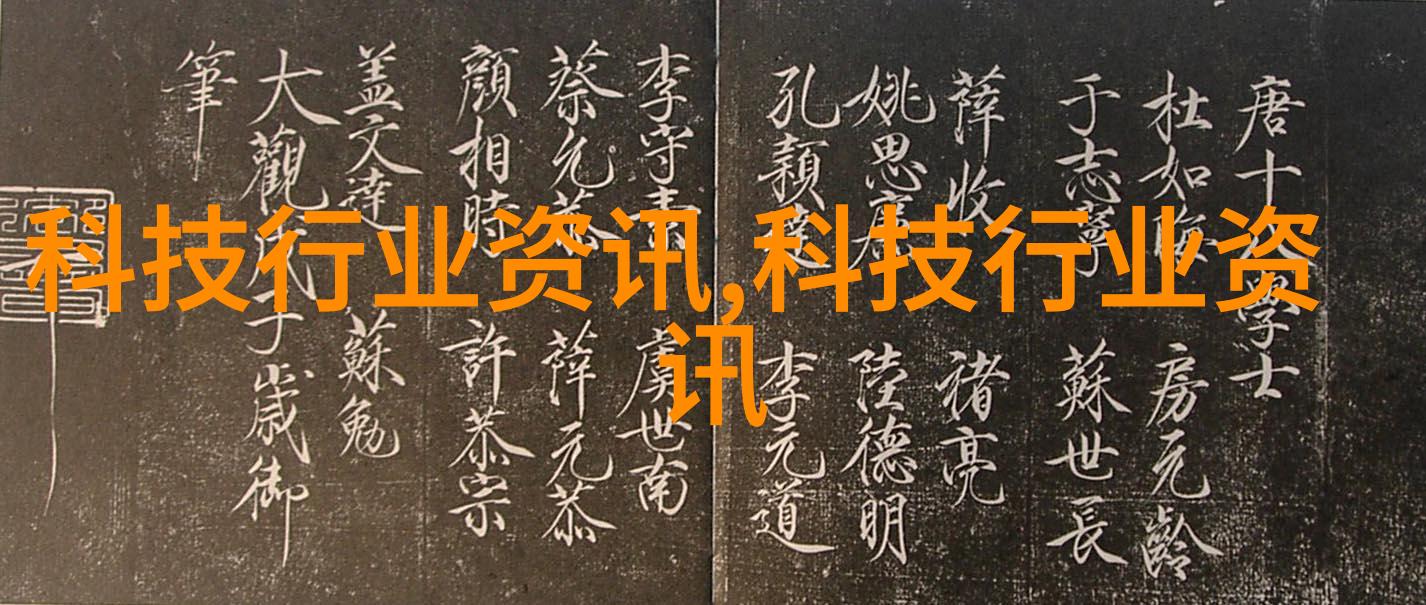 科技行业资讯,科技行业资
讯
唐十八學士
杜如晦 房元齡
于志寧 蘇世長
薛收 褚亮
姚思廉 陸德明
孔穎達 李元道
李守素 虞世南
蔡允恭 薛元恭
顔相時 許恭宗
盖文達 蘇勉
大觀庚子歲御
筆